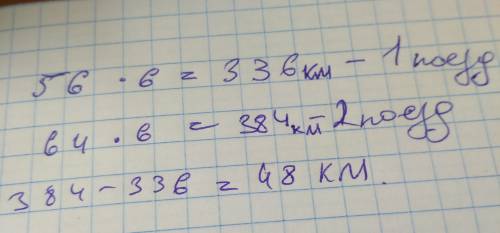 56 · 6 = 336 км - 1 поезд
64 · 6 = 384 км 2 поезд
384 - 336 = 48 км.